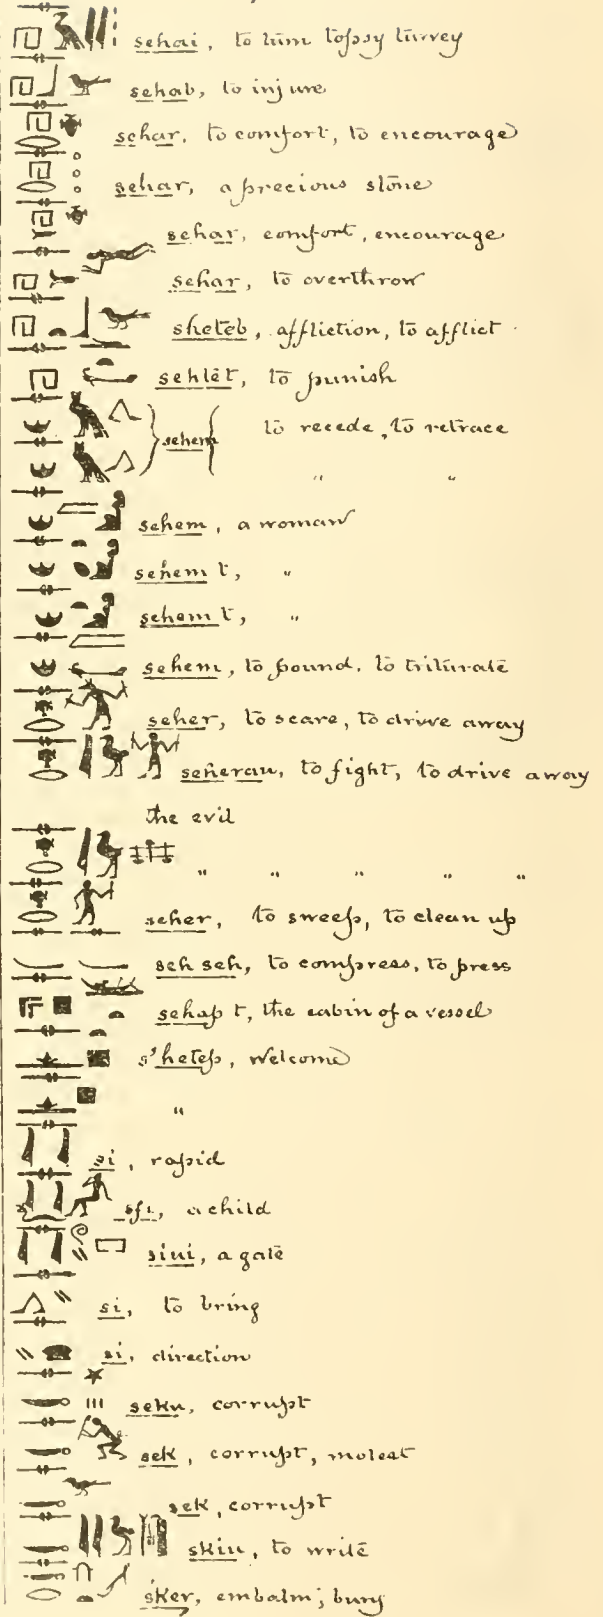 sehai, to turn topsy turvey
sehab, to injure
sehar, to comfort, to encourage
sehar, a precious stone
sehar, comfort, encourage
sehar, to overthrow
sheteb, affliction, to afflict
sehtet, to punish
sehem to recede, to retrace
" "
sehem, a woman
sehem t, "
sehem t, "
sehem, to pound, to triturate
seher, to scare, to drive away
seherau, to fight, to drive away
the evil
" " " " "
seher, to sweep, to clean up
seh seh, to compress, to press
sehap t, the cabin of a vessel
s'hetep, welcome
"
si, rapid
sfi, a child
siui, a gate
si, to bring
si, direction
seku, corrupt
sek, corrupt, molest
sek, corrupt
skiu, to write
sker, embalm; bury